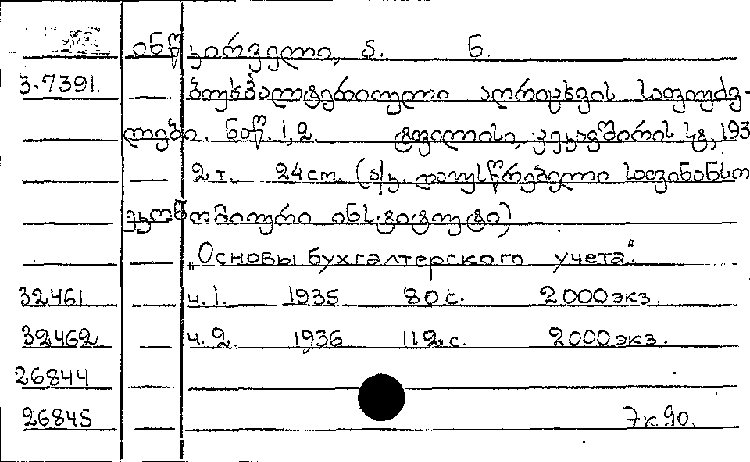 ინწკირველი, ა. ნ.
3.7391 ბუხჰალტერიული აღრიცხვის საფუძვ-
ლები. ნაწ. 1, 2. ტფილისი, 193
2 т. 24 cm. (ა/კ. დაუსწრებელი საფინანსო
ეკონომიური ინსტიტუტი)
„Основы бухгалтерского учета“.
32461 ч. 1. 1935 80 с. 2000 экз.
32462 ч. 2. 1936 112 с. 2000 экз.
26844
26845 7к 90.